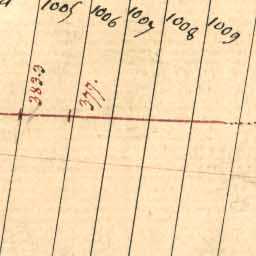 1005 1006 1007 1008 1009
383.3 377.